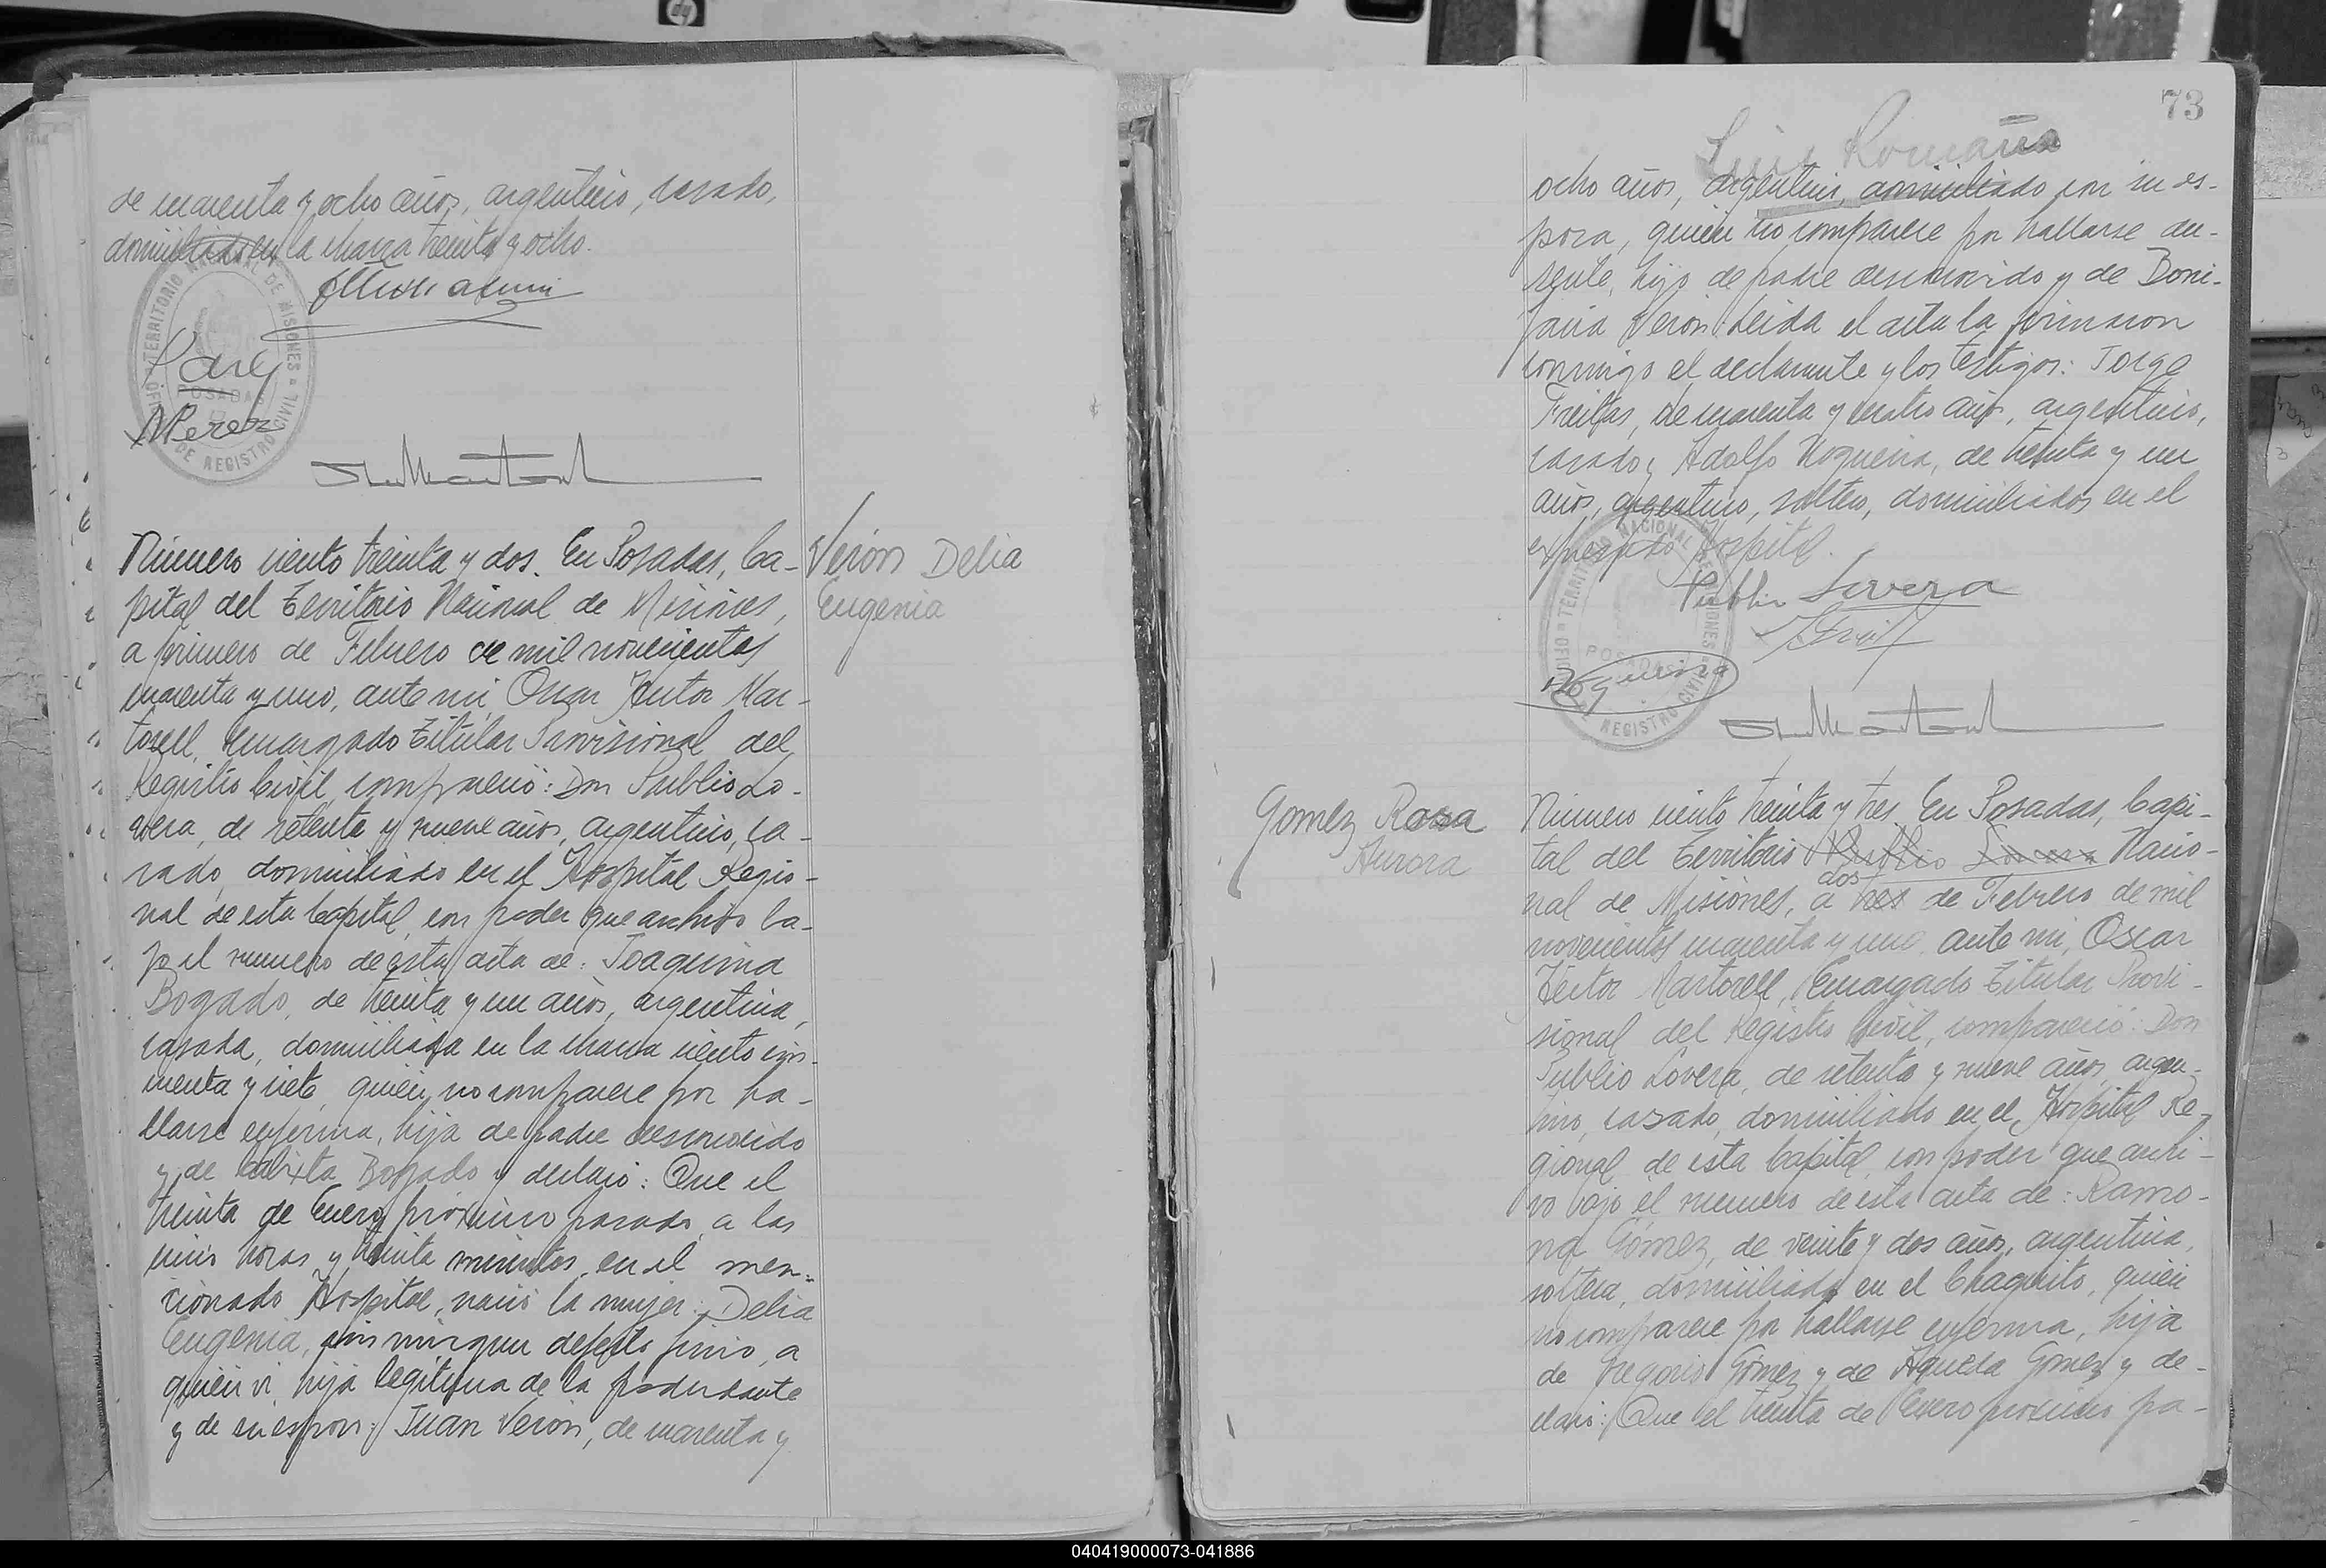 de cuarenta y ocho años, argentino, casado,
domiciliado en la chacra treinta y ocho.
TERRITORIO NACIONAL DE MISIONES
POSADAS
OFICINA DE REGISTRO CIVIL
NPerez
Número ciento treinta y dos. En Posadas, Ca-
pital del Territorio Nacional de Misiones,
a primero de Febrero de mil novecientos
cuarenta y uno, ante mi, Oscar Hector Mar-
torell, Encargado Titular Provisional del
Registro Civil, compareció: Don Publio Lo-
vera, de setenta y nueve años, argentino, ca-
sado, domiciliado en el Hospital Regio-
nal de esta Capital, con poder que archivo ba-
jo el número de esta acta de: Joaquina
Bogado, de treinta y un años, argentina,
casada, domiciliada en la chacra ciento cin-
cuenta y siete, quién no comparece por ha-
llarse enferma, hija de padre desconocido
y de Calixta Bogado y declaró: Que el
treinta de Enero próximo pasado, a las
cinco horas y treinta minutos, en el men-
cionado Hospital, nació la mujer: Delia
Eugenia, sin ningun defecto físico, a
quién vi, hija legitima de la poderdante
y de su esposo: Juan Verón, de cuarenta y
Verón Delia
Eugenia
73
Luis Romaña
ocho años, argentino, domiciliado con su es-
posa, quién no comparece por hallarse au-
sente, hijo de padre desconocido y de Boni-
facia Verón. Leida el acta la firmaron
conmigo el declarante y los testigos: Jorge
Freitas, de cuarenta y cuatro años, argentino,
casado y Adolfo Nogueira, de treinta y un
años, argentino, soltero, domiciliados en el
expresado Hospital.
Publio Lovera
TERRITORIO NACIONAL DE MISIONES
POSADAS
Nogueira
REGISTRO CIVIL
Gomez Rosa
Aurora
Número ciento treinta y tres. En Posadas, Capi-
tal del Territorio Publio Lovera Nacio-
dos
nal de Misiones, a tres de Febrero de mil
novecientos cuarenta y uno, ante mi, Oscar
Héctor Martorell, Encargado Titular Provi-
sional del Registro Civil, compareció: Don
Publio Lovera, de setenta y nueve años, argen-
tino, casado, domiciliado en el Hospital Re-
gional de esta Capital, con poder que archi-
vo bajo el número de esta acta de: Ramo-
na Gómez, de veinte y dos años, argentina,
soltera, domiciliada en el Chaquito, quién
no comparece por hallarse enferma, hija
de Gregorio Gómez y de Aqueda Gomez y de-
claró: Que el treinta de Enero próximo pa-
040419000073-041886